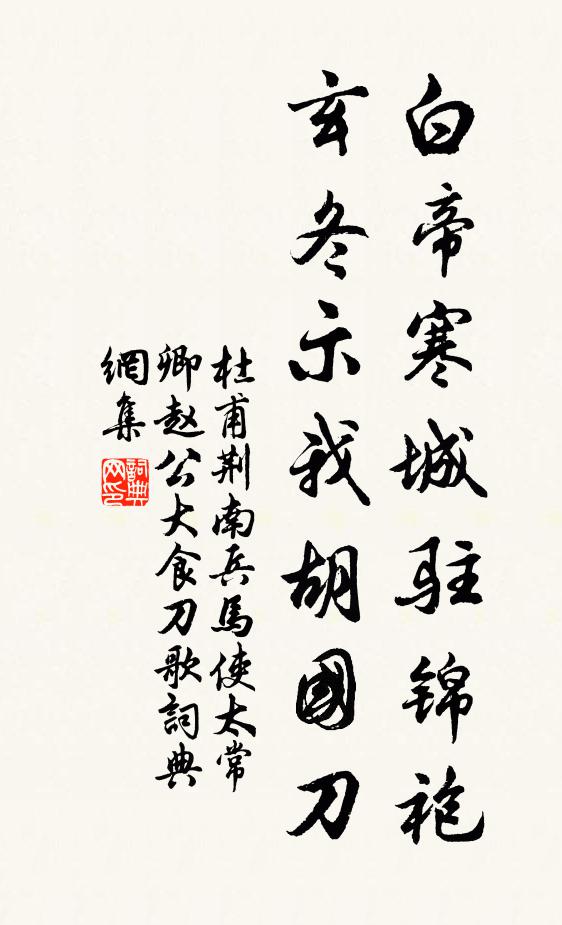 白帝寒城駐錦袍
玄冬示我胡國刀
杜甫荆南兵馬使太常
卿赵公大食刀歌詞典
網集
詞典
网印